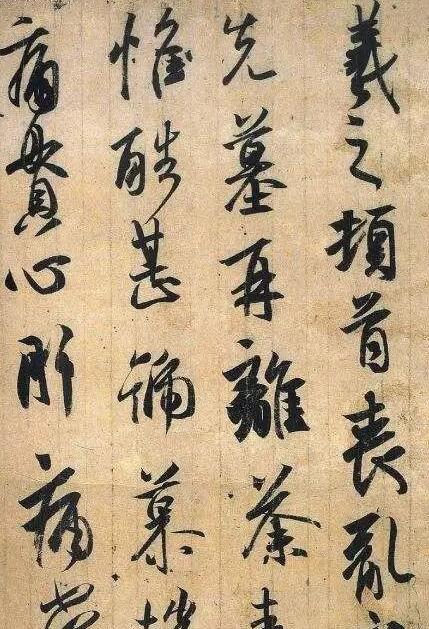 羲之頓首喪亂
先墓再離荼
惟酷甚號慕
痛貫心肝痛